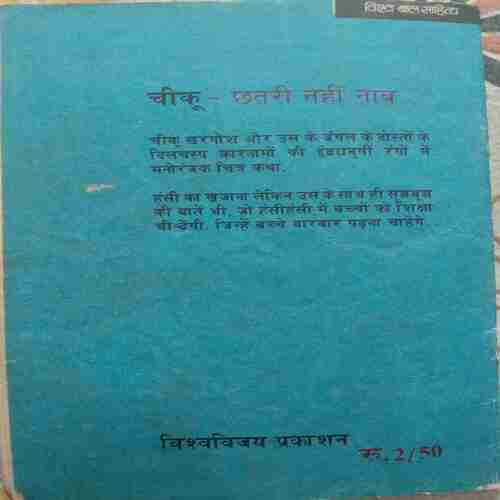 विश्व बाल साहित्य
चीकू – छतरी नहीं नाव
चीकू खरगोश और उस के जंगल के दोस्तों के
दिलचस्प कारनामों की इंद्रधनुषी रंगों में
मनोरंजक चित्र कथा.
हंसी का खजाना लेकिन उस के साथ ही सूझबूझ
की बातें भी, जो हंसीहंसी में बच्चों को शिक्षा
भी देंगी. जिन्हें बच्चे बारबार पढ़ना चाहेंगे...
विश्वविजय प्रकाशन
रू. 2/50